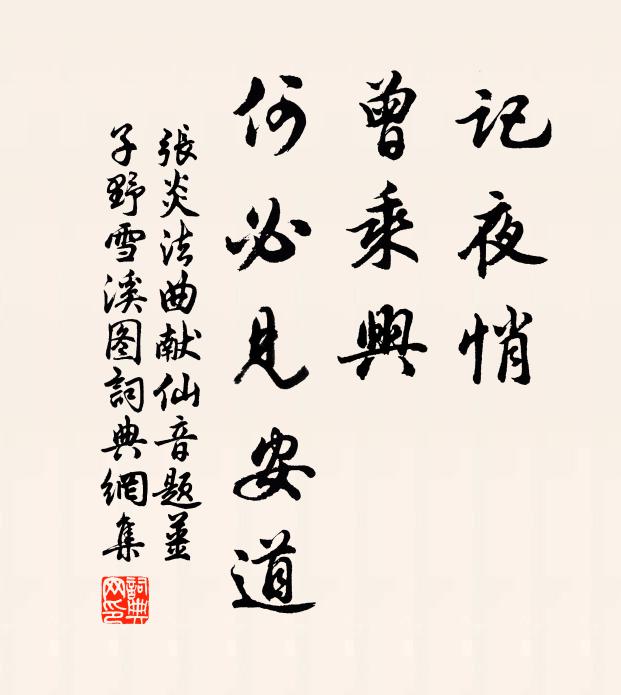 記夜悄
曾乘興
何必見安道
張炎法曲献仙音题姜
子野雪溪图詞典網集
詞典
网印